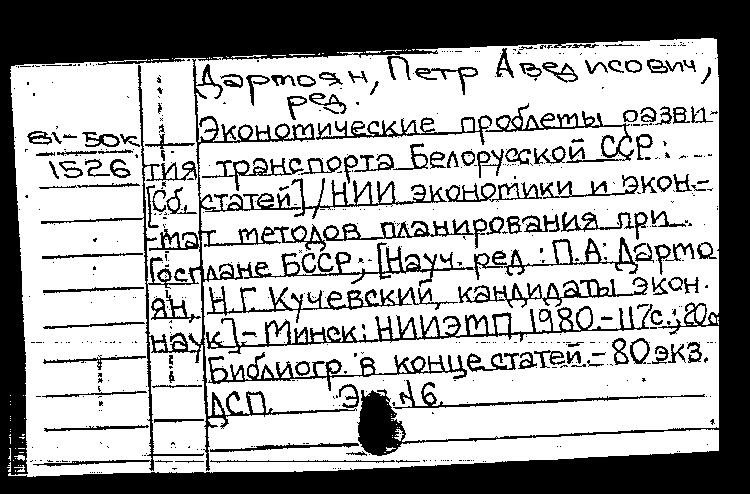 Дартоян, Петр Аведисович,
ред.
81-50к
Экономические проблемы разви-
1526
тия транспорта Белорусской ССР:
[Сб. статей] / НИИ экономики и экон.-
-мат методов планирования при
Госплане БССР; [Науч. ред.: П.А. Дарто-
ян, Н.Г. Кучевский, кандидаты экон.
наук]-Минск: НИИЭМП, 1980.-117с.; 20с
Библиогр. в конце статей.-80экз.
ДСП. Экз.№6.